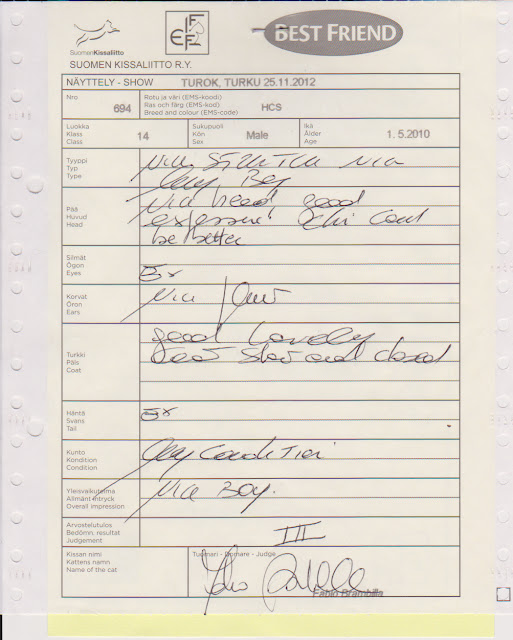 SUOMEN KISSALIITTO R.Y.
SuomenKissaliitto
FIFe
BEST FRIEND
NÄYTTELY - SHOW TUROK, TURKU 25.11.2012
Nro 694
Rotu ja väri (EMS-koodi)
Ras och färg (EMS-kod)
Breed and colour (EMS-code)
HCS
Luokka
Klass
Class
14
Sukupuoli
Kön
Sex
Male
Ikä
Ålder
Age
1. 5.2010
Tyyppi
Typ
Type
Nice
Boy
Pää
Huvud
Head
Nice head good
expression! Chin could
be better
Silmät
Ögon
Eyes
Ex
Korvat
Öron
Ears
Nice
Turkki
Päls
Coat
good Lovely
and
Häntä
Svans
Tail
Ex
Kunto
Kondition
Condition
Condition
Yleisvaikutelma
Allmänt intryck
Overall impression
Nice Boy.
Arvostelutulos
Bedömn. resultat
Judgement
III
Kissan nimi
Kattens namn
Name of the cat
Tuomari - Domare - Judge
Fabio Brambilla